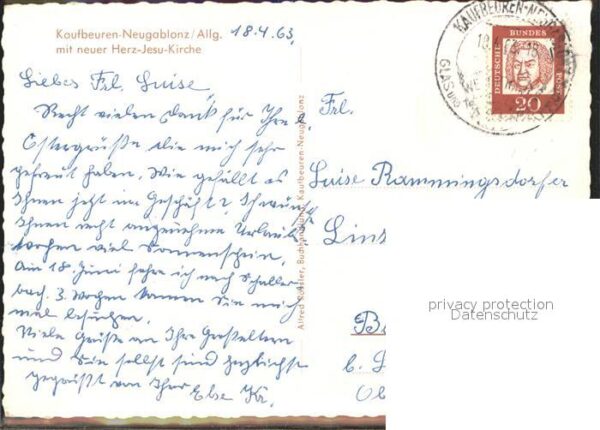 Kaufbeuren-Neugablonz/Allg.
mit neuer Herz-Jesu-Kirche
18.4.63
Liebes Frl. Luise,
Recht vielen Dank für Ihre l.
Ostergrüße die mich sehr
gefreut haben. Wie gefällt es
Ihnen jetzt im Geschäft? Ich wünsch
Ihnen recht angenehme Urlaubs
wochen viel Sonnenschein.
Am 18. Juni fahre ich nach Schaller
bach. 3 Wochen können Sie mich
mal besuchen.
Viele Grüße an Ihre Großeltern
und Sie selbst sind herzlichst
gegrüßt von Ihrer Else
Alfred Buchhandlung, Kaufbeuren-Neugablonz
KAUFBEUREN-NEUGABLONZ
DEUTSCHE BUNDESPOST
20
Frl.
Luise Rammingsdorfer
Linz
privacy protection
Datenschutz